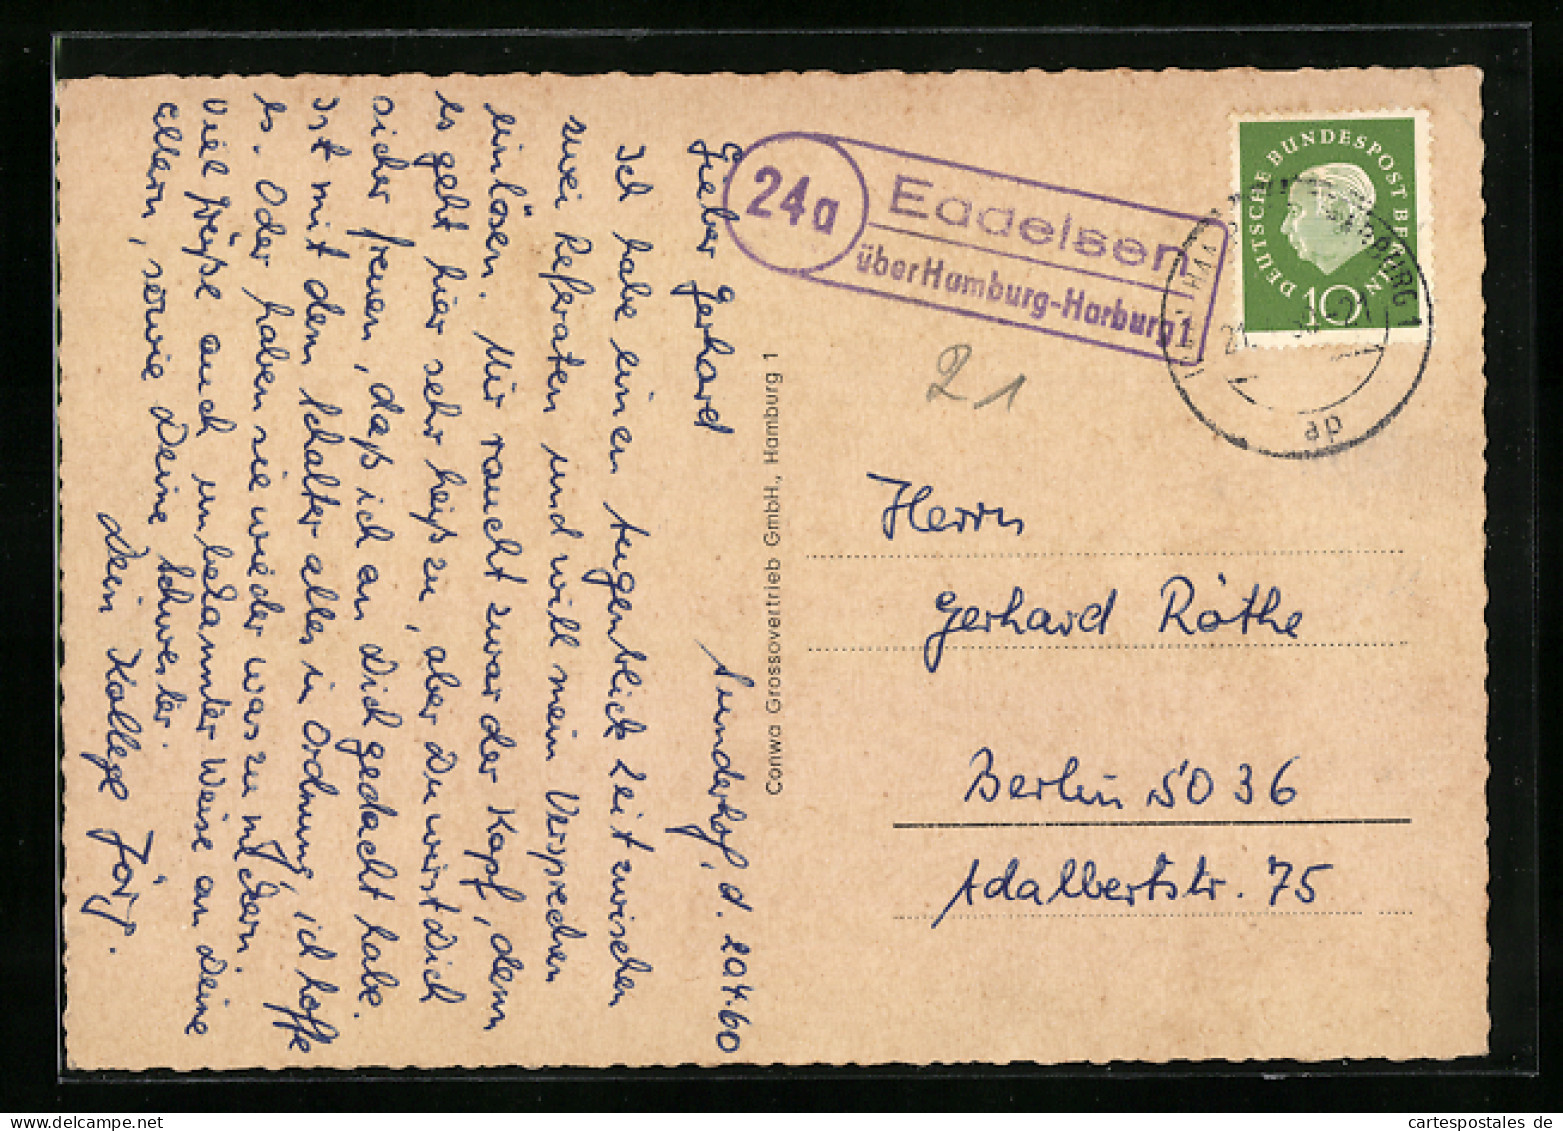 Sunderhof, d. 20.4.60
Lieber Gerhard
Ich habe einen Augenblick Zeit zwischen
zwei Referaten und will mein Versprechen
einlösen. Mir raucht zwar der Kopf, denn
es geht hier sehr heiß zu, aber Du wirst Dich
sicher freuen, daß ich an Dich gedacht habe.
Ist mit dem Schalter alles in Ordnung, ich hoffe
es. Oder haben sie wieder was zu
Viel Grüße auch unbekannter Weise an Deine
Eltern, sowie Deine Schwester.
Dein Kollege Jörg.
Conwa Grossovertrieb GmbH., Hamburg 1
24a
Eddelsen
über Hamburg-Harburg 1
DEUTSCHE BUNDESPOST BERLIN
10
HARBURG 1
21
-21
ap
21
Herrn
Gerhard Röthe
Berlin SO 36
Adalbertstr. 75
cartespostales de